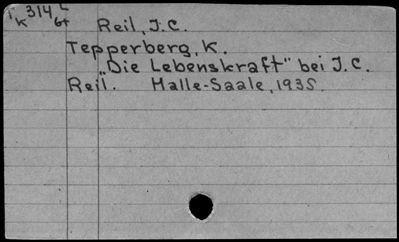 K314 L
6t
Reil, J.C.
Tepperberg, K.
„Die Lebenskraft" bei J.C.
Reil. Halle-Saale, 1935.